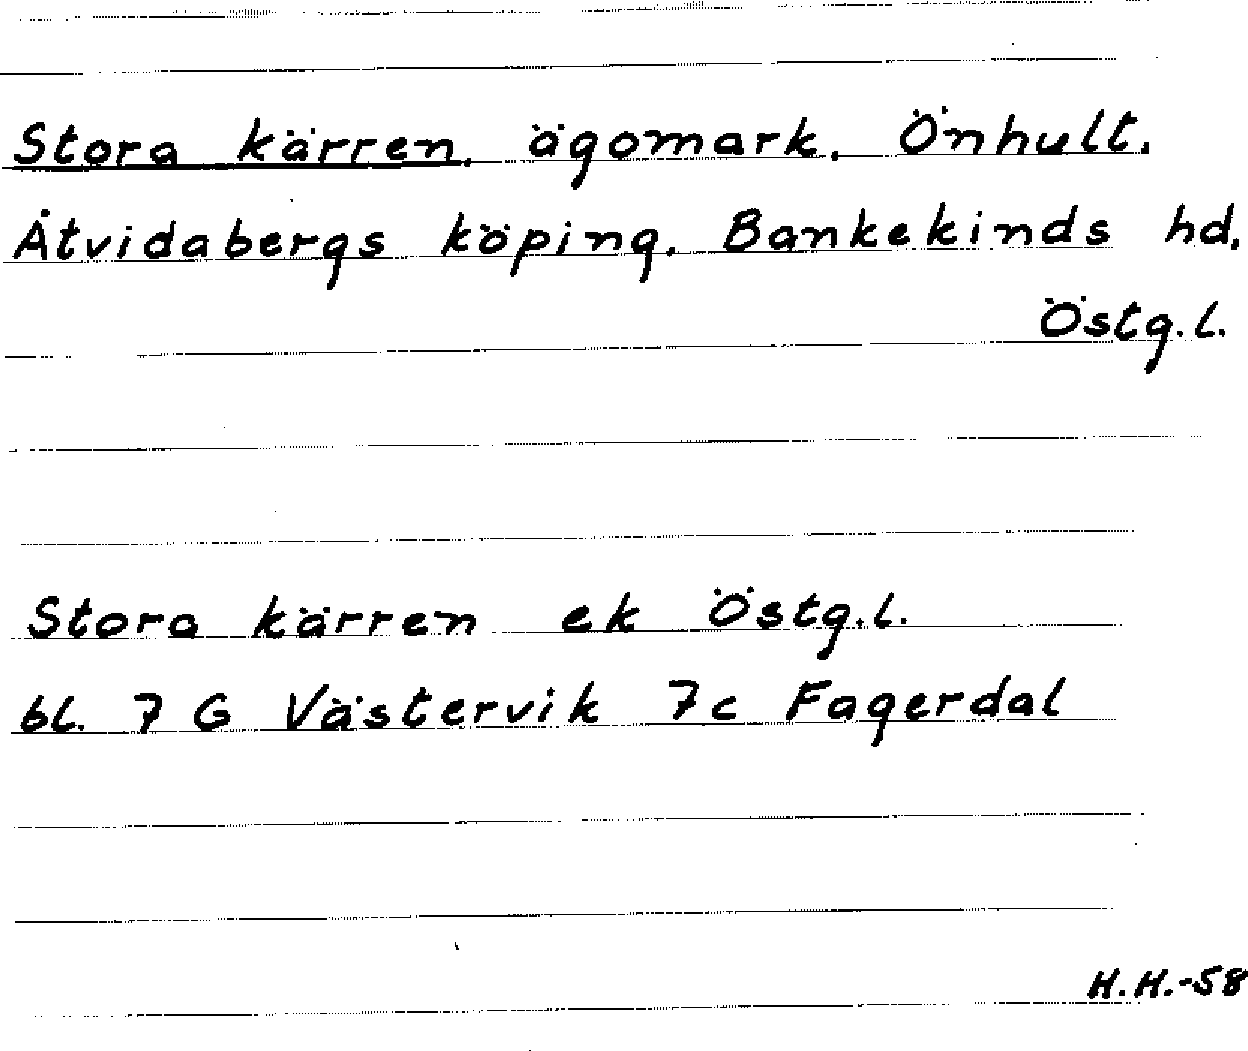 Stora kärren, ägomark, Önhult,
Åtvidabergs köping, Bankekinds hd,
Östg.l.
Stora kärren ek Östg.l.
bl. 7 G Västervik 7c Fagerdal
H.H.-58